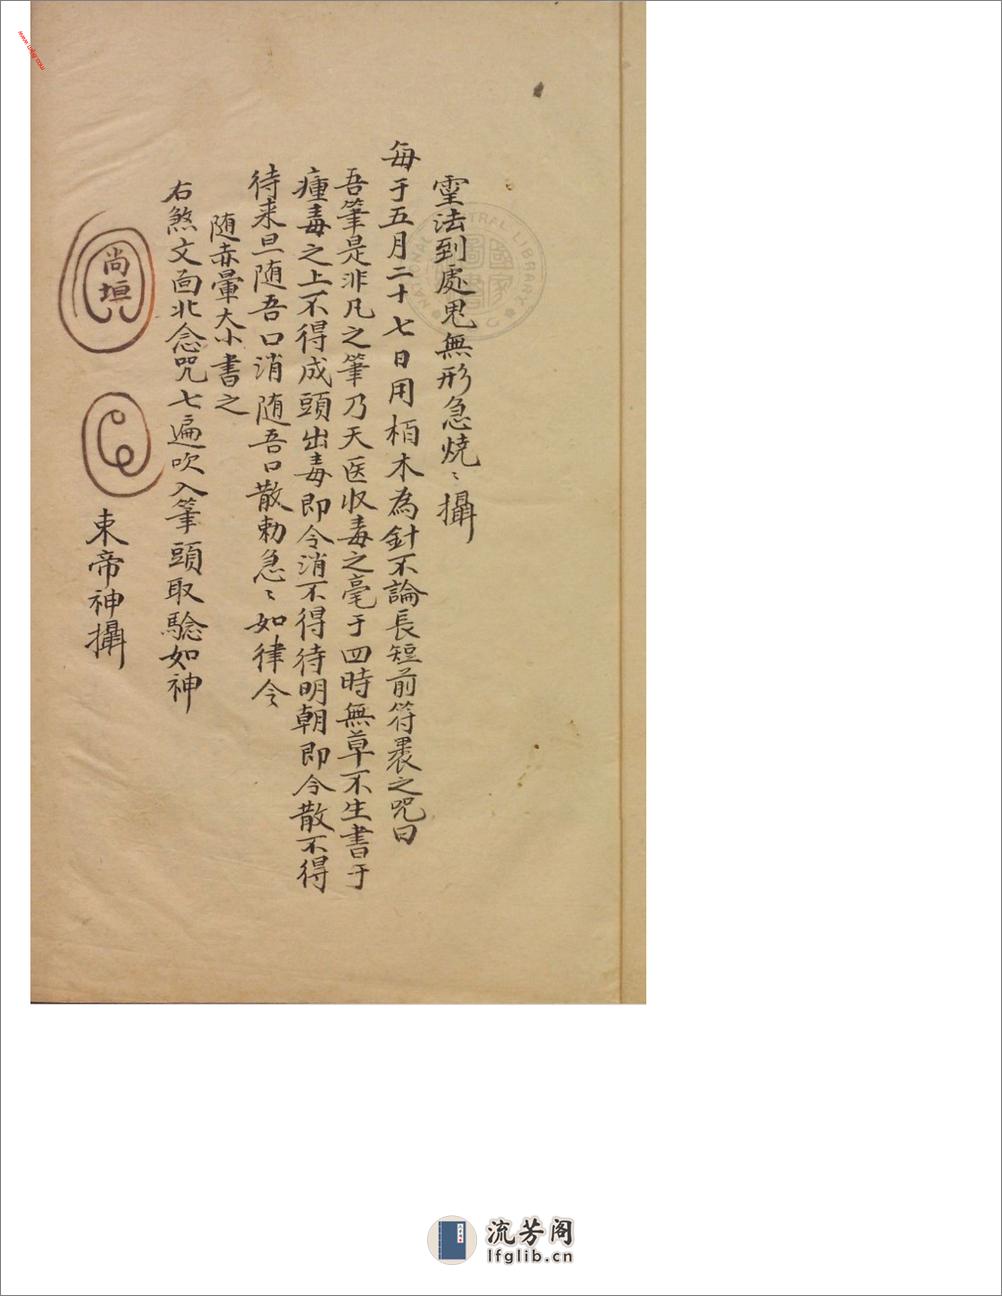 靈法到處鬼無形急燒〻攝
每于五月二十七日用栢木為針不論長短前符褁之咒曰
吾筆是非凡之筆乃天医收毒之毫于四時無草不生書于
瘇毒之上不得成頭出毒即令消不得待明朝即令散不得
待来旦随吾口消随吾口散勅急〻如律令
随赤暈大小書之
右煞文面北念咒七遍吹入筆頭取騐如神
尚垣
東帝神攝
NATIONAL CENTRAL LIBRARY
國家圖書
流芳阁
lfglib.cn